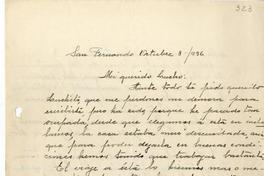 323
San Fernando Octubre 8/1936
Mi querido Lucho:
Ante todo te pido querido
Luchito, que me perdones mi demora para
escribirte pero ha sido porque he pasado tan
ocupada, desde que llegamos a ésta en insta
larnos, la casa estaba muy descuidada, así
que para poder dejarla en buenas condi
ciones hemos tenido que trabajar bastante.
El viaje a ésta lo hicimos muy